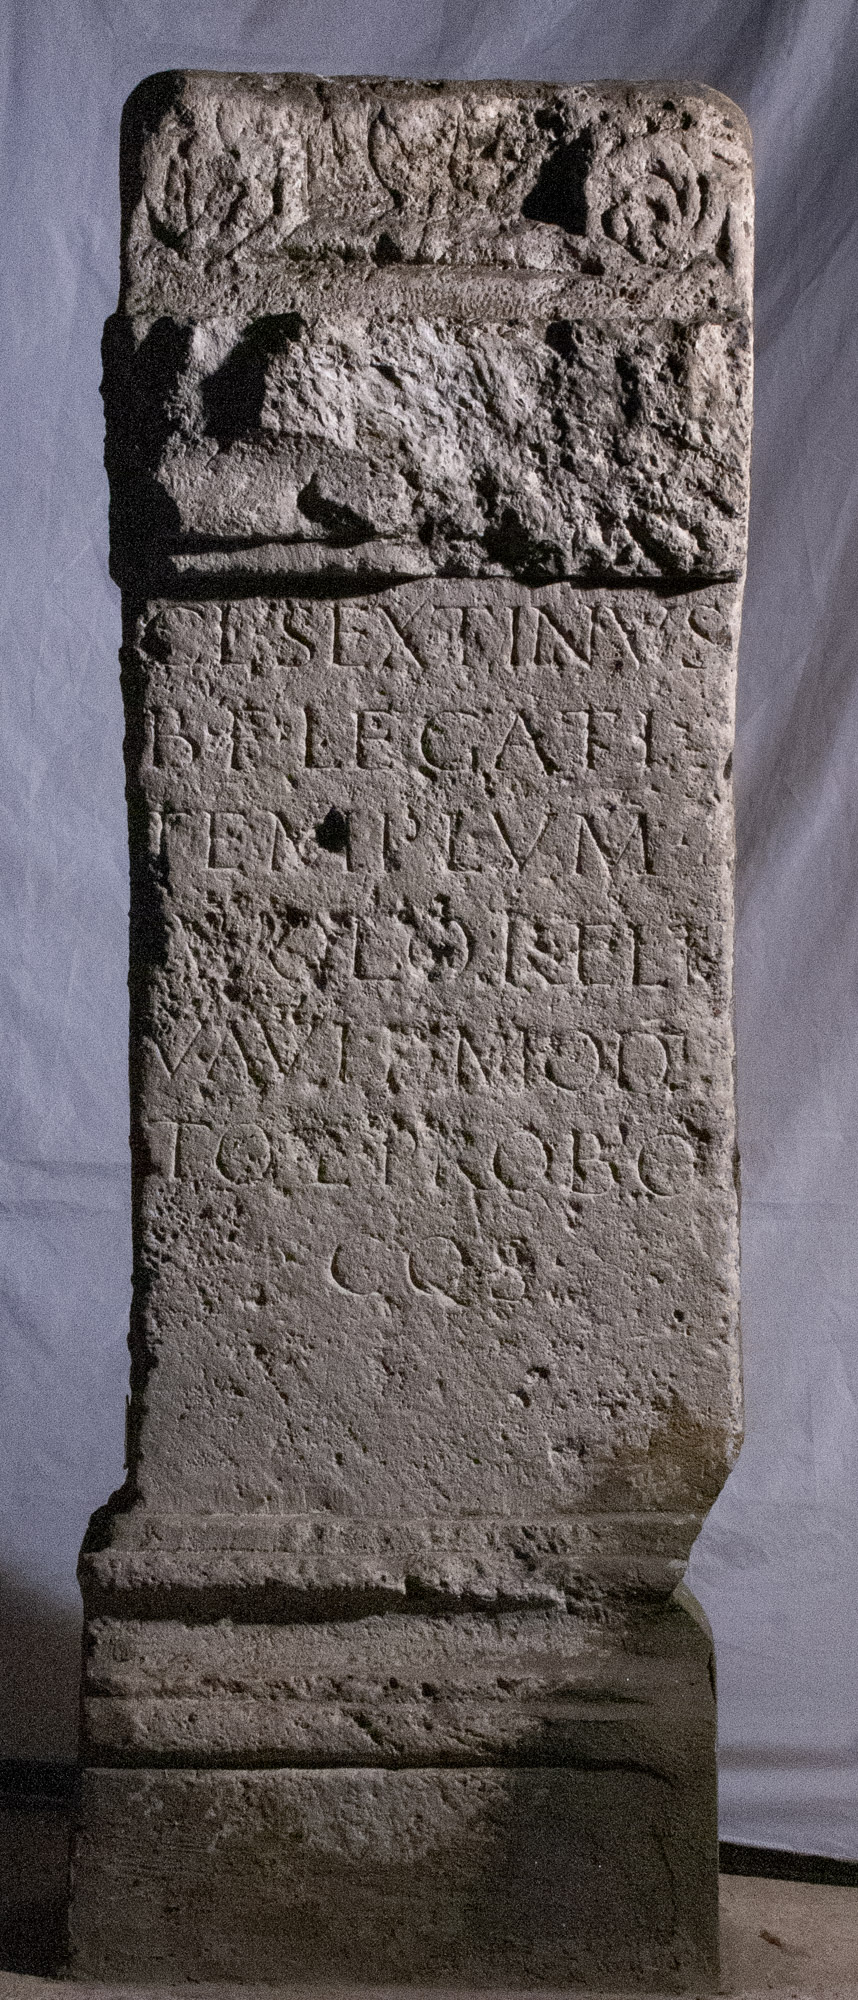 CL SEXTINVS
BF LEGATI
TEMPLVM A
SOLO RELE
VAVIT MODE
TO E PROBO
COS